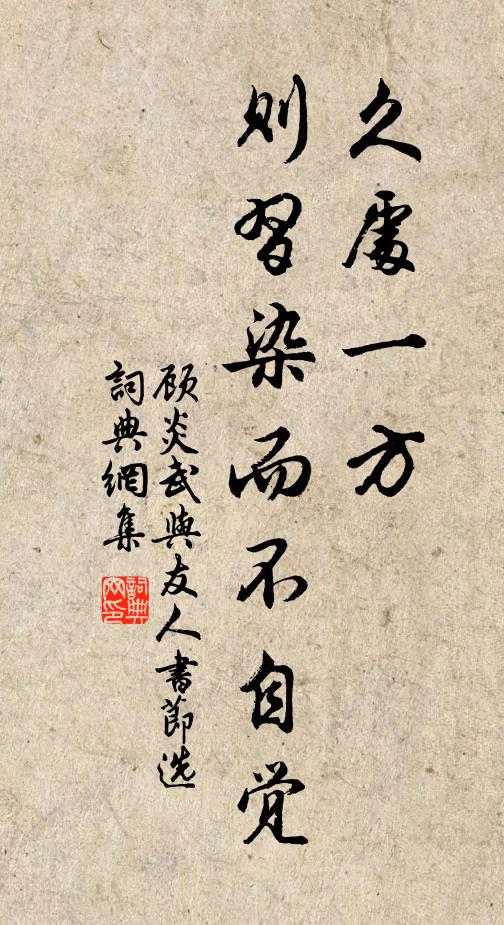 久處一方
则習染而不自觉
顾炎武與友人書節选
詞典網集
詞典
网印